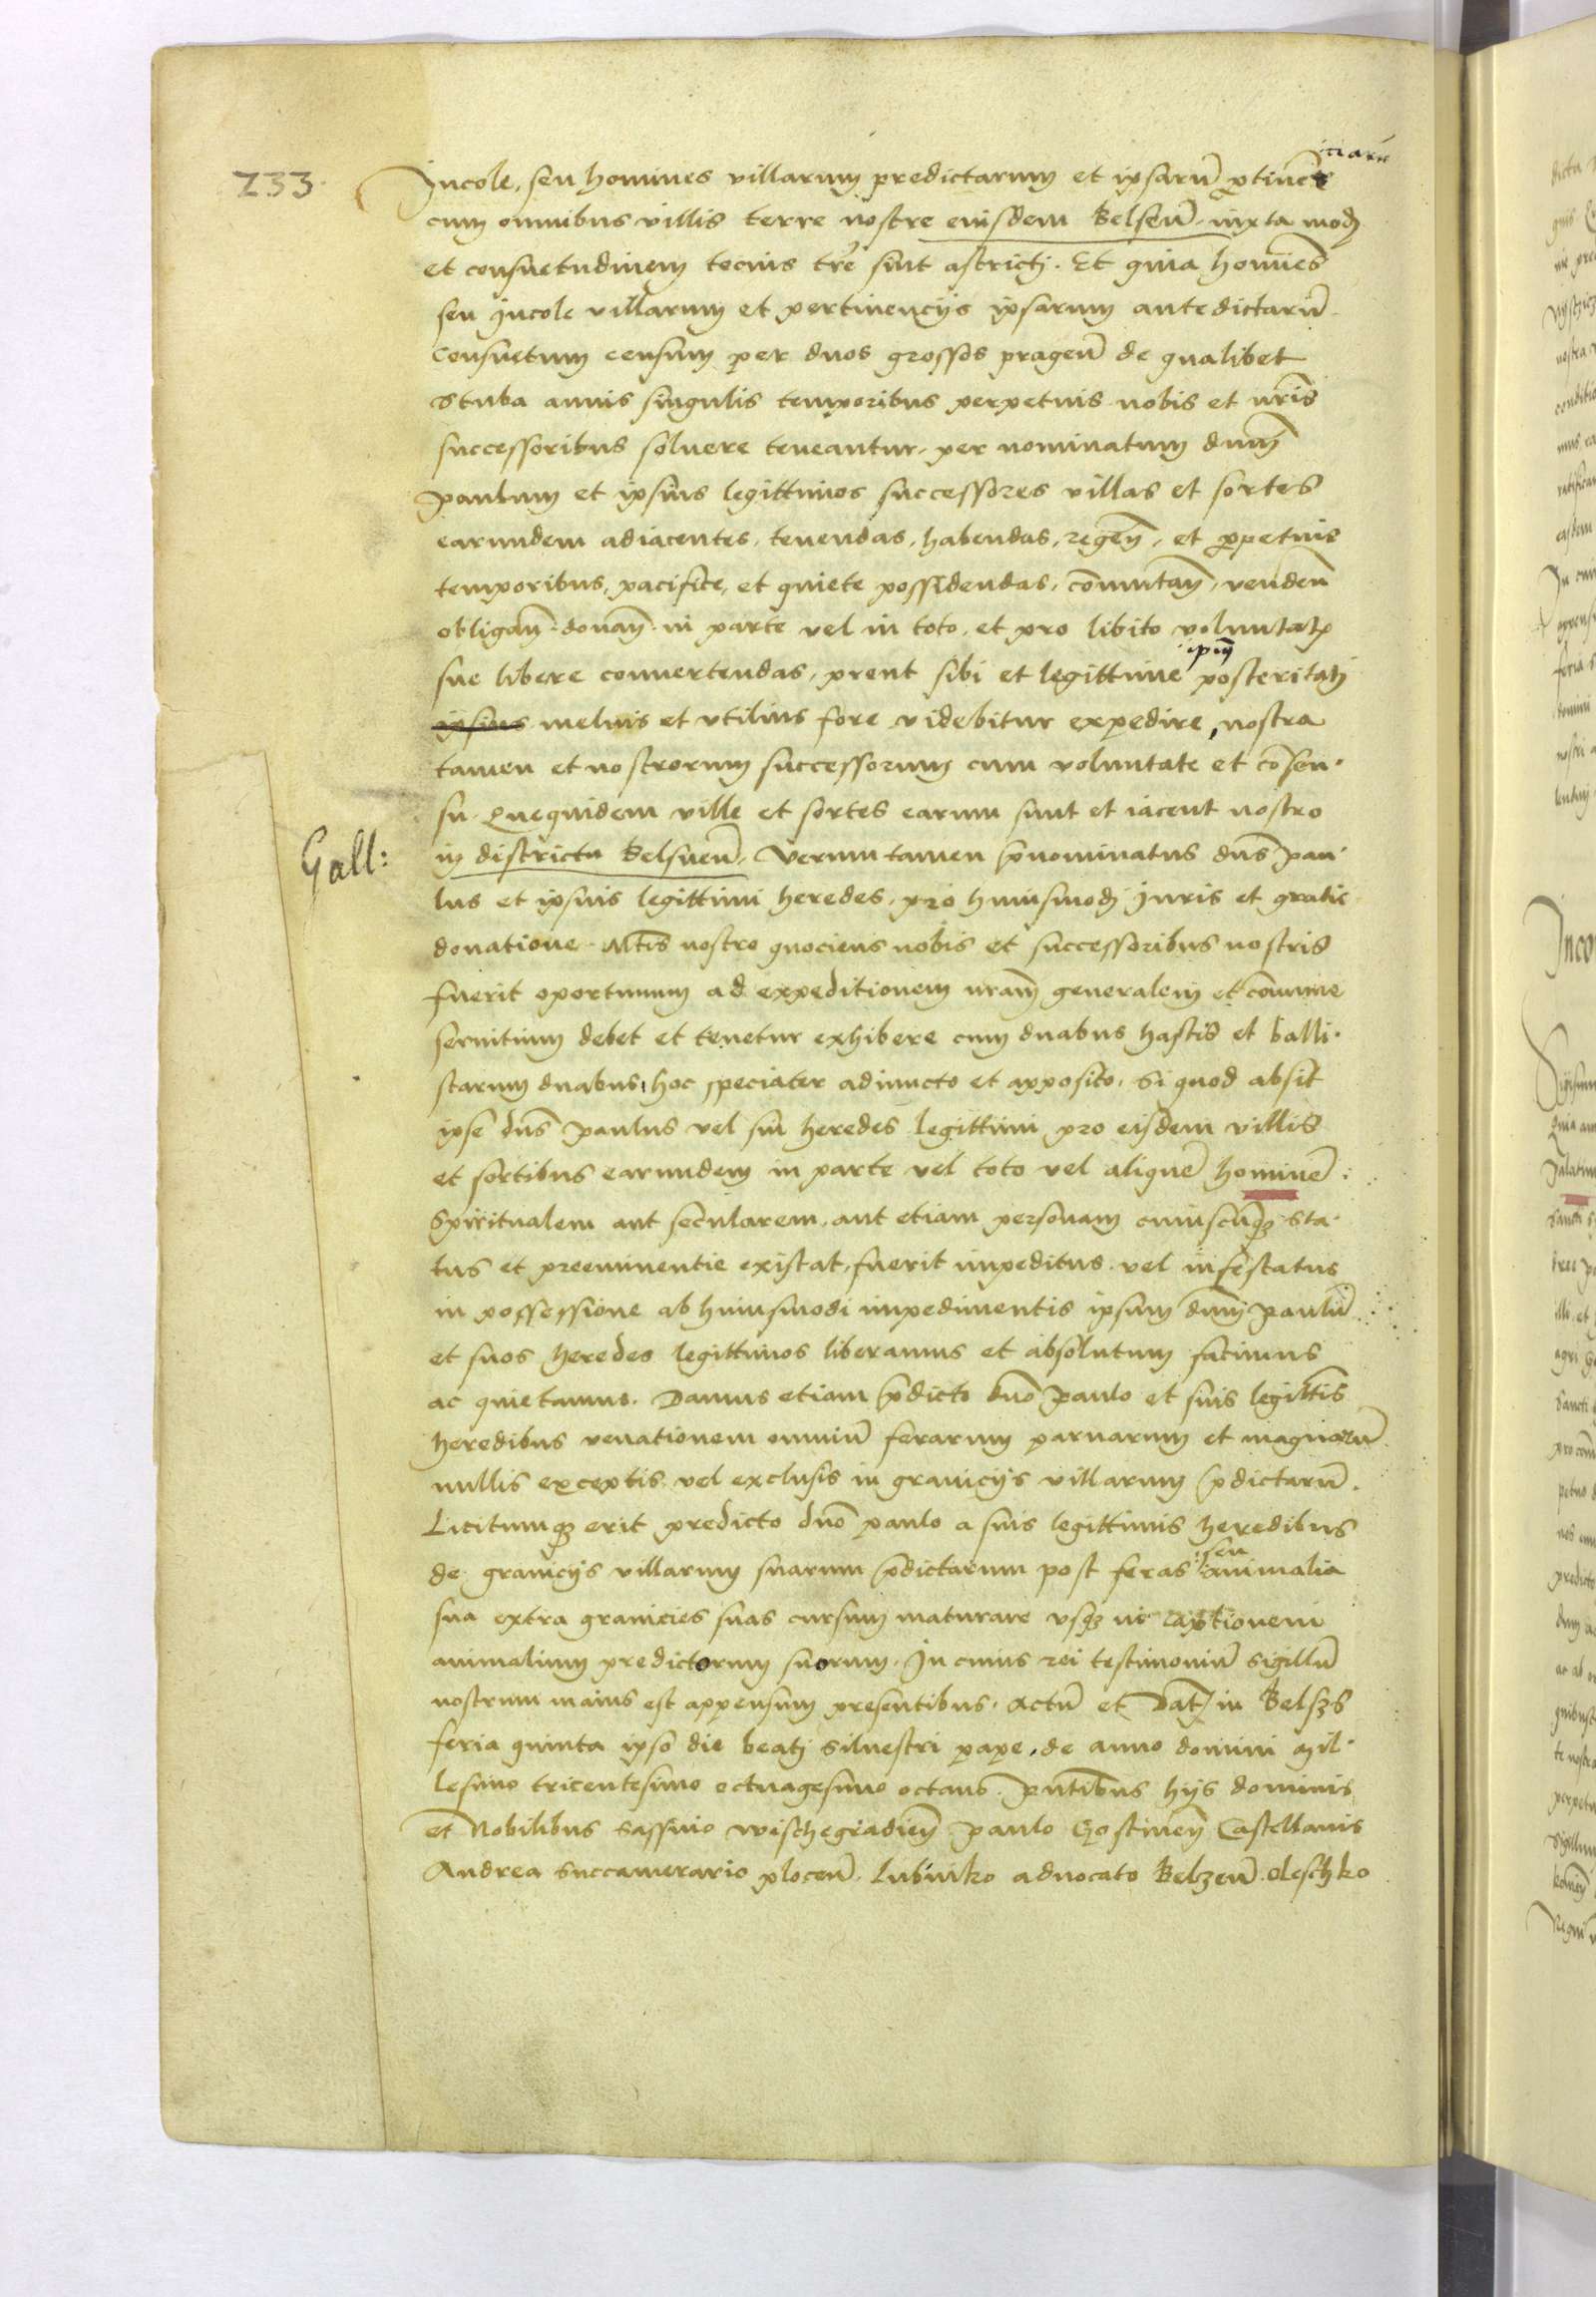 233
ciarũ
Incole, seu homines villarum predictarum et ipsarũ ꝑtinẽ
cum omnibus villis terre nostre eiusdem Belsen̄ iuxta modũ
et consuetudinem tocius tr̃e sint astricti. Et quia homines
seu incole villarum et pertinencijs ipsarum antedictarũ
consuetum censum per duos grossos pragen̄ de qualibet
Stuba annis singulis temporibus perpetuis nobis et nr̃is
successoribus soluere teneantur, per nominatum dnm̃
Paulum et ipsius legittimos successores villas et sortes
earundem adiacentes, tenendas, habendas, regen̄, et ꝑpetuis
temporibus, pacifice, et quiete possidendas, com̃utan̄, venden̄
obligan̄. donan̄. in parte vel in toto. et pro libito voluntatꝭ
ip̃ius
sue libere conuertendas, prout sibi et legittime posteritati
ipsius melius et vtilius fore videbitur expedire, nostra
tamen et nostrorum successorum cum voluntate et cõsen-
su. Quequidem ville et sortes earum sunt et iacent nostro
Gall:
in districtu Belsnen̄. Verumtamen p̃nominatus dñs Pau-
lus et ipsius legittimi heredes, pro huiusmodi iuris et gratie
donatione. Attñ nostro quociens nobis et successoribus nostris
fuerit oportunum ad expeditionem nr̃am generalem et cõmune
seruitium debet et tenetur exhibere cum duabus hastis et balli-
starum duabus, hoc specialiter adiuncto et apposito. Si quod absit
ipse dñs Paulus vel sui heredes legittimi pro eisdem villis
et sortibus earundem in parte vel toto vel aliquẽ hominẽ
Spiritualem aut secularem, aut etiam personam cuiuscũqꝫ sta-
tus et preeminentie existat, fuerit impeditus vel infestatus
in possessione ab huiusmodi impedimentis ipsum dnm̃ Paulũ
et suos heredes legittimos liberamus et absolutum facimus
ac quietamus. Damus etiam p̃dicto dño Paulo et suis legittĩs
heredibus venationem omniũ ferarum paruarum et magnarũ
nullis exceptis vel exclusis in granicijs villarum p̃dictarũ.
Licitumqꝫ erit predicto dño Paulo a suis legittimis heredibus
seu
de granicijs villarum suarum p̃dictarum post feras animalia
sua extra granicies suas cursum maturare vsqꝫ in captionem
animalium predictorum suorum. In cuius rei testimoniũ Sigillũ
nostrum maius est appensum presentibus. Actũ et Dat̃ in Belszs
feria quinta ipso die beati Siluestri pape, de anno domini mil-
lesimo tricentesimo octuagesimo octauo. Pñtibus hijs dominis
et Nobilibus Sassino wischegradien̄ Paulo Gostinen̄ Castellanis
Andrea Succamerario plocen̄. Lubinko aduocato Belzen̄. Oleschko